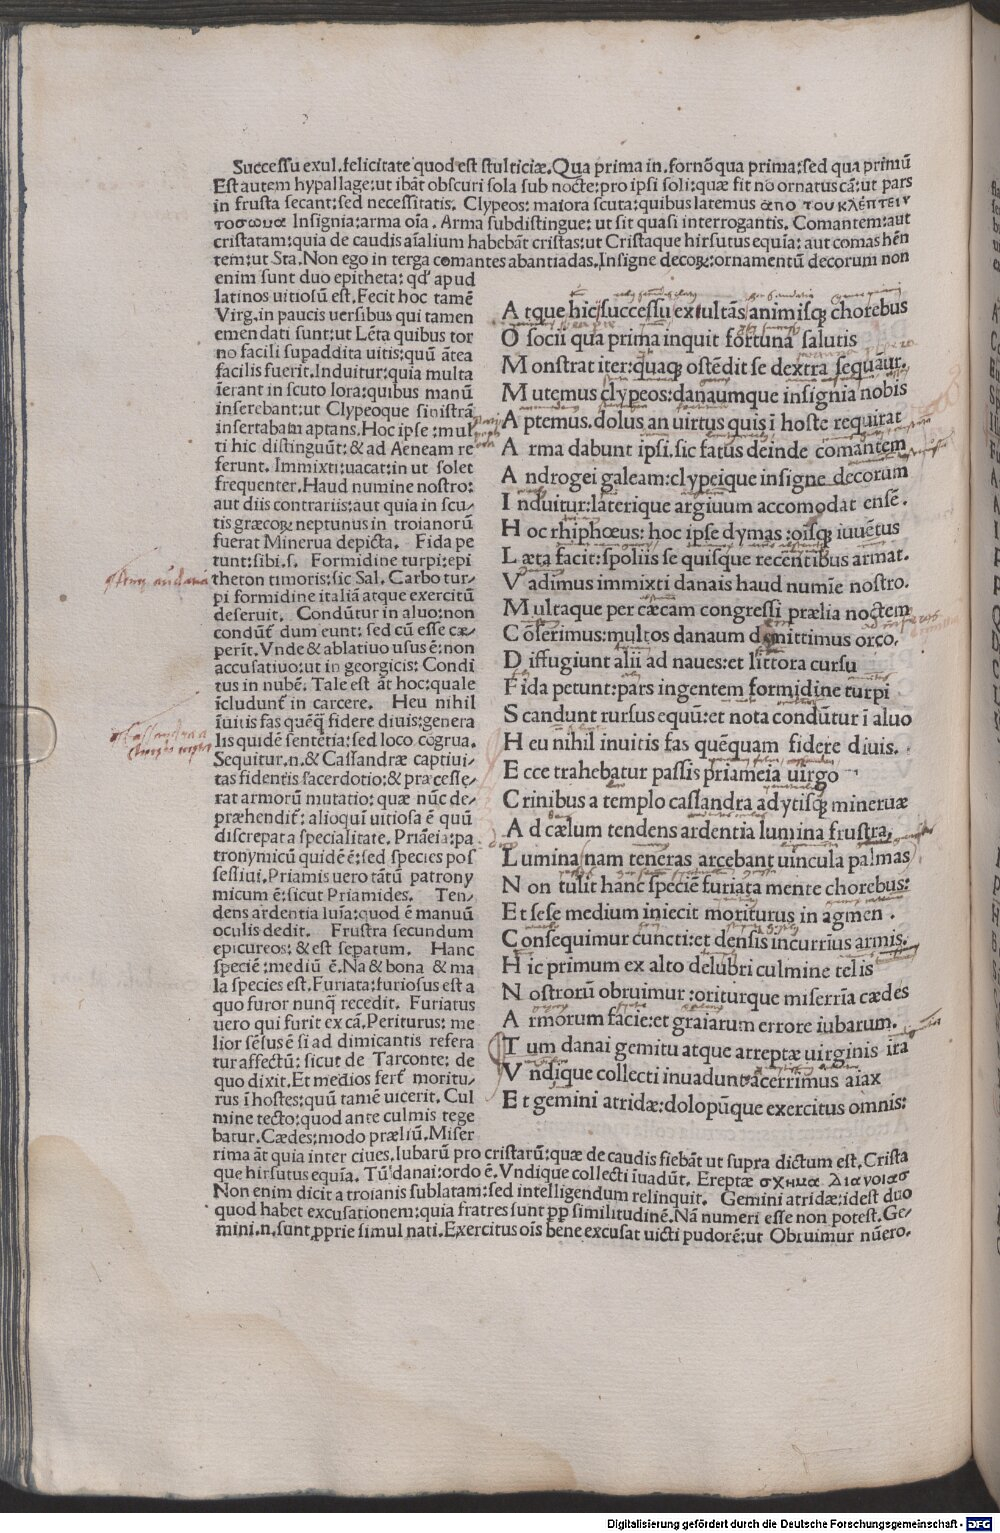 Successu exul.felicitate quod est stulticiæ.Qua prima in.fornõ qua prima:sed qua primũ
Est autem hypallage:ut ibãt obscuri sola sub nocte:pro ipsi soli:quæ fit nõ ornatus cã:ut pars
in frusta secant:sed necessitatis. Clypeos: maiora scuta:quibus latemus ἀπο του κλέπτειν
το σωμα Insignia:arma oĩa. Arma subdistingue: ut sit quasi interrogantis. Comantem:aut
cristatam:quia de caudis aĩalium habebãt cristas:ut Cristaque hirsutus equĩa: aut comas hẽn
tem:ut Sta.Non ego in terga comantes abantiadas.Insigne decoꝝ:ornamentũ decorum non
enim sunt duo epitheta: qd' apud
latinos uitiosũ est.Fecit hoc tamẽ
Virg.in paucis uersibus qui tamen
emendati sunt:ut Lẽta quibus tor
no facili supaddita uitis:quũ ãtea
facilis fuerit.Induitur:quia multa
ĩerant in scuto lora:quibus manũ
inserebant:ut Clypeoque sinistrã
insertabam aptans.Hoc ipse:mul
ti hic distinguũt:& ad Aeneam re
ferunt. Immixti:uacat:in ut solet
frequenter.Haud numine nostro:
aut diis contrariis:aut quia in scu-
tis græcoꝝ neptunus in troianorũ
fuerat Minerua depicta. Fida pe
tunt:sibi.s. Formidine turpi:epi
theton timoris:sic Sal. Carbo tur-
pi formidine italiã atque exercitũ
deseruit. Condũtur in aluo:non
condũt̃ dum eunt: sed cũ esse cæ-
perit.Vnde & ablatiuo usus ẽ:non
accusatiuo:ut in georgicis: Condi
tus in nubẽ. Tale est ãt hoc:quale
ĩcludunt̃ in carcere. Heu nihil
ĩuitis fas quẽq̃ fidere diuis:genera
lis quidẽ sentẽtia:sed loco cõgrua.
Sequitur.n.& Cassandræ captiui-
tas fidentis sacerdotio:& præcesse-
rat armorũ mutatio: quæ nũc de-
præhendit̃: alioqui uitiosa ẽ quũ
discrepat a specialitate. Priãeia:pa
tronymicũ quidẽ ẽ:sed species pos
sessiui.Priamis uero tãtũ patrony
micum ẽ:sicut Priamides. Ten-
dens ardentia luĩa:quod ẽ manuũ
oculis dedit. Frustra secundum
epicureos: & est separum. Hanc
speciẽ:mediũ ẽ.Na & bona & ma
la species est.Furiata:furiosus est a
quo furor nunq̃ recedit. Furiatus
uero qui furit ex cã.Periturus: me
lior sẽsus ẽ si ad dimicantis refera
tur affectũ: sicut de Tarconte: de
quo dixit.Et medios fert̃ moritu-
rus ĩ hostes:quũ tamẽ uicerit. Cul
mine tecto:quod ante culmis tege
batur.Cædes:modo præliũ.Miser
rima ãt quia inter ciues.Iubarũ pro cristarũ:quæ de caudis fiebãt ut supra dictum est.Crista
que hirsutus equĩa. Tũ danai: ordo ẽ. Vndique collecti ĩuadũt. Ereptæ σχημα διανοιασ
Non enim dicit a troianis sublatam:sed intelligendum relinquit. Gemini atridæ:idest duo
quod habet excusationem:quia fratres sunt ꝑp similitudinẽ. Nã numeri esse non potest.Ge-
mini.n.sunt ꝓprie simul nati.Exercitus oĩs bene excusat uicti pudorẽ:ut Obruimur nũero.
A tque hic successu exultãs animisqꝫ chorebus
O socii qua prima inquit fortuna salutis
M onstrat iter:quaqꝫ ostẽdit se dextra sequaur.
M utemus clypeos:danaumque insignia nobis
A ptemus.dolus an uirtus quis ĩ hoste requirat
A rma dabunt ipsi.sic fatus deinde comantem
A ndrogei galeam:clypeique insigne decorum
I nduitur:laterique argiuum accomodat ensẽ.
H oc rhiphœus: hoc ipse dymas:oĩsqꝫ iuuẽtus
L æta facit:spoliis se quisque recentibus armat.
V adimus immixti danais haud numĩe nostro.
M ultaque per cæcam congressi prælia noctem
C õserimus:multos danaum demittimus orco.
D iffugiunt alii ad naues:et littora cursu
F ida petunt:pars ingentem formidine turpi
S candunt rursus equũ:et nota condũtur ĩ aluo
H eu nihil inuitis fas quẽquam fidere diuis.
E cce trahebatur passis priameia uirgo
C rinibus a templo cassandra adytisqꝫ mineruæ
A d cælum tendens ardentia lumina frustra,
L umina nam teneras arcebant uincula palmas
N on tulit hanc speciẽ furiata mente chorebus:
E t sese medium iniecit moriturus in agmen .
C onsequimur cuncti:et densis incurrĩus armis.
H ic primum ex alto delubri culmine telis
N ostrorũ obruimur:oriturque miserrĩa cædes
A rmorum facie:et graiarum errore iubarum.
T um danai gemitu atque arreptæ uirginis ira
V ndique collecti inuadunt:acerrimus aiax
E t gemini atridæ:dolopũque exercitus omnis:
Digitalisierung gefördert durch die Deutsche Forschungsgemeinschaft - DFG